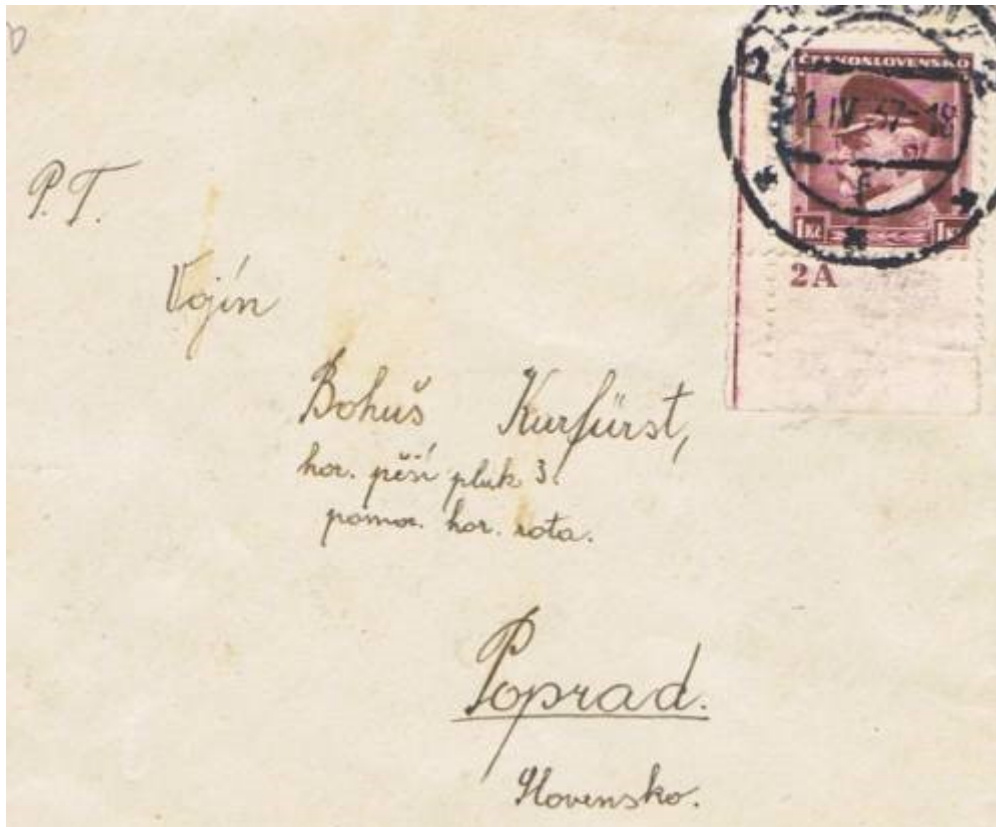 ČESKOSLOVENSKO
21 IV 37-18
1 Kč
2A
P. T.
Vojín
Bohuš Kurfürst,
hor. pěší pluk 3.
pomoc. hor. rota.
Poprad.
Slovensko.